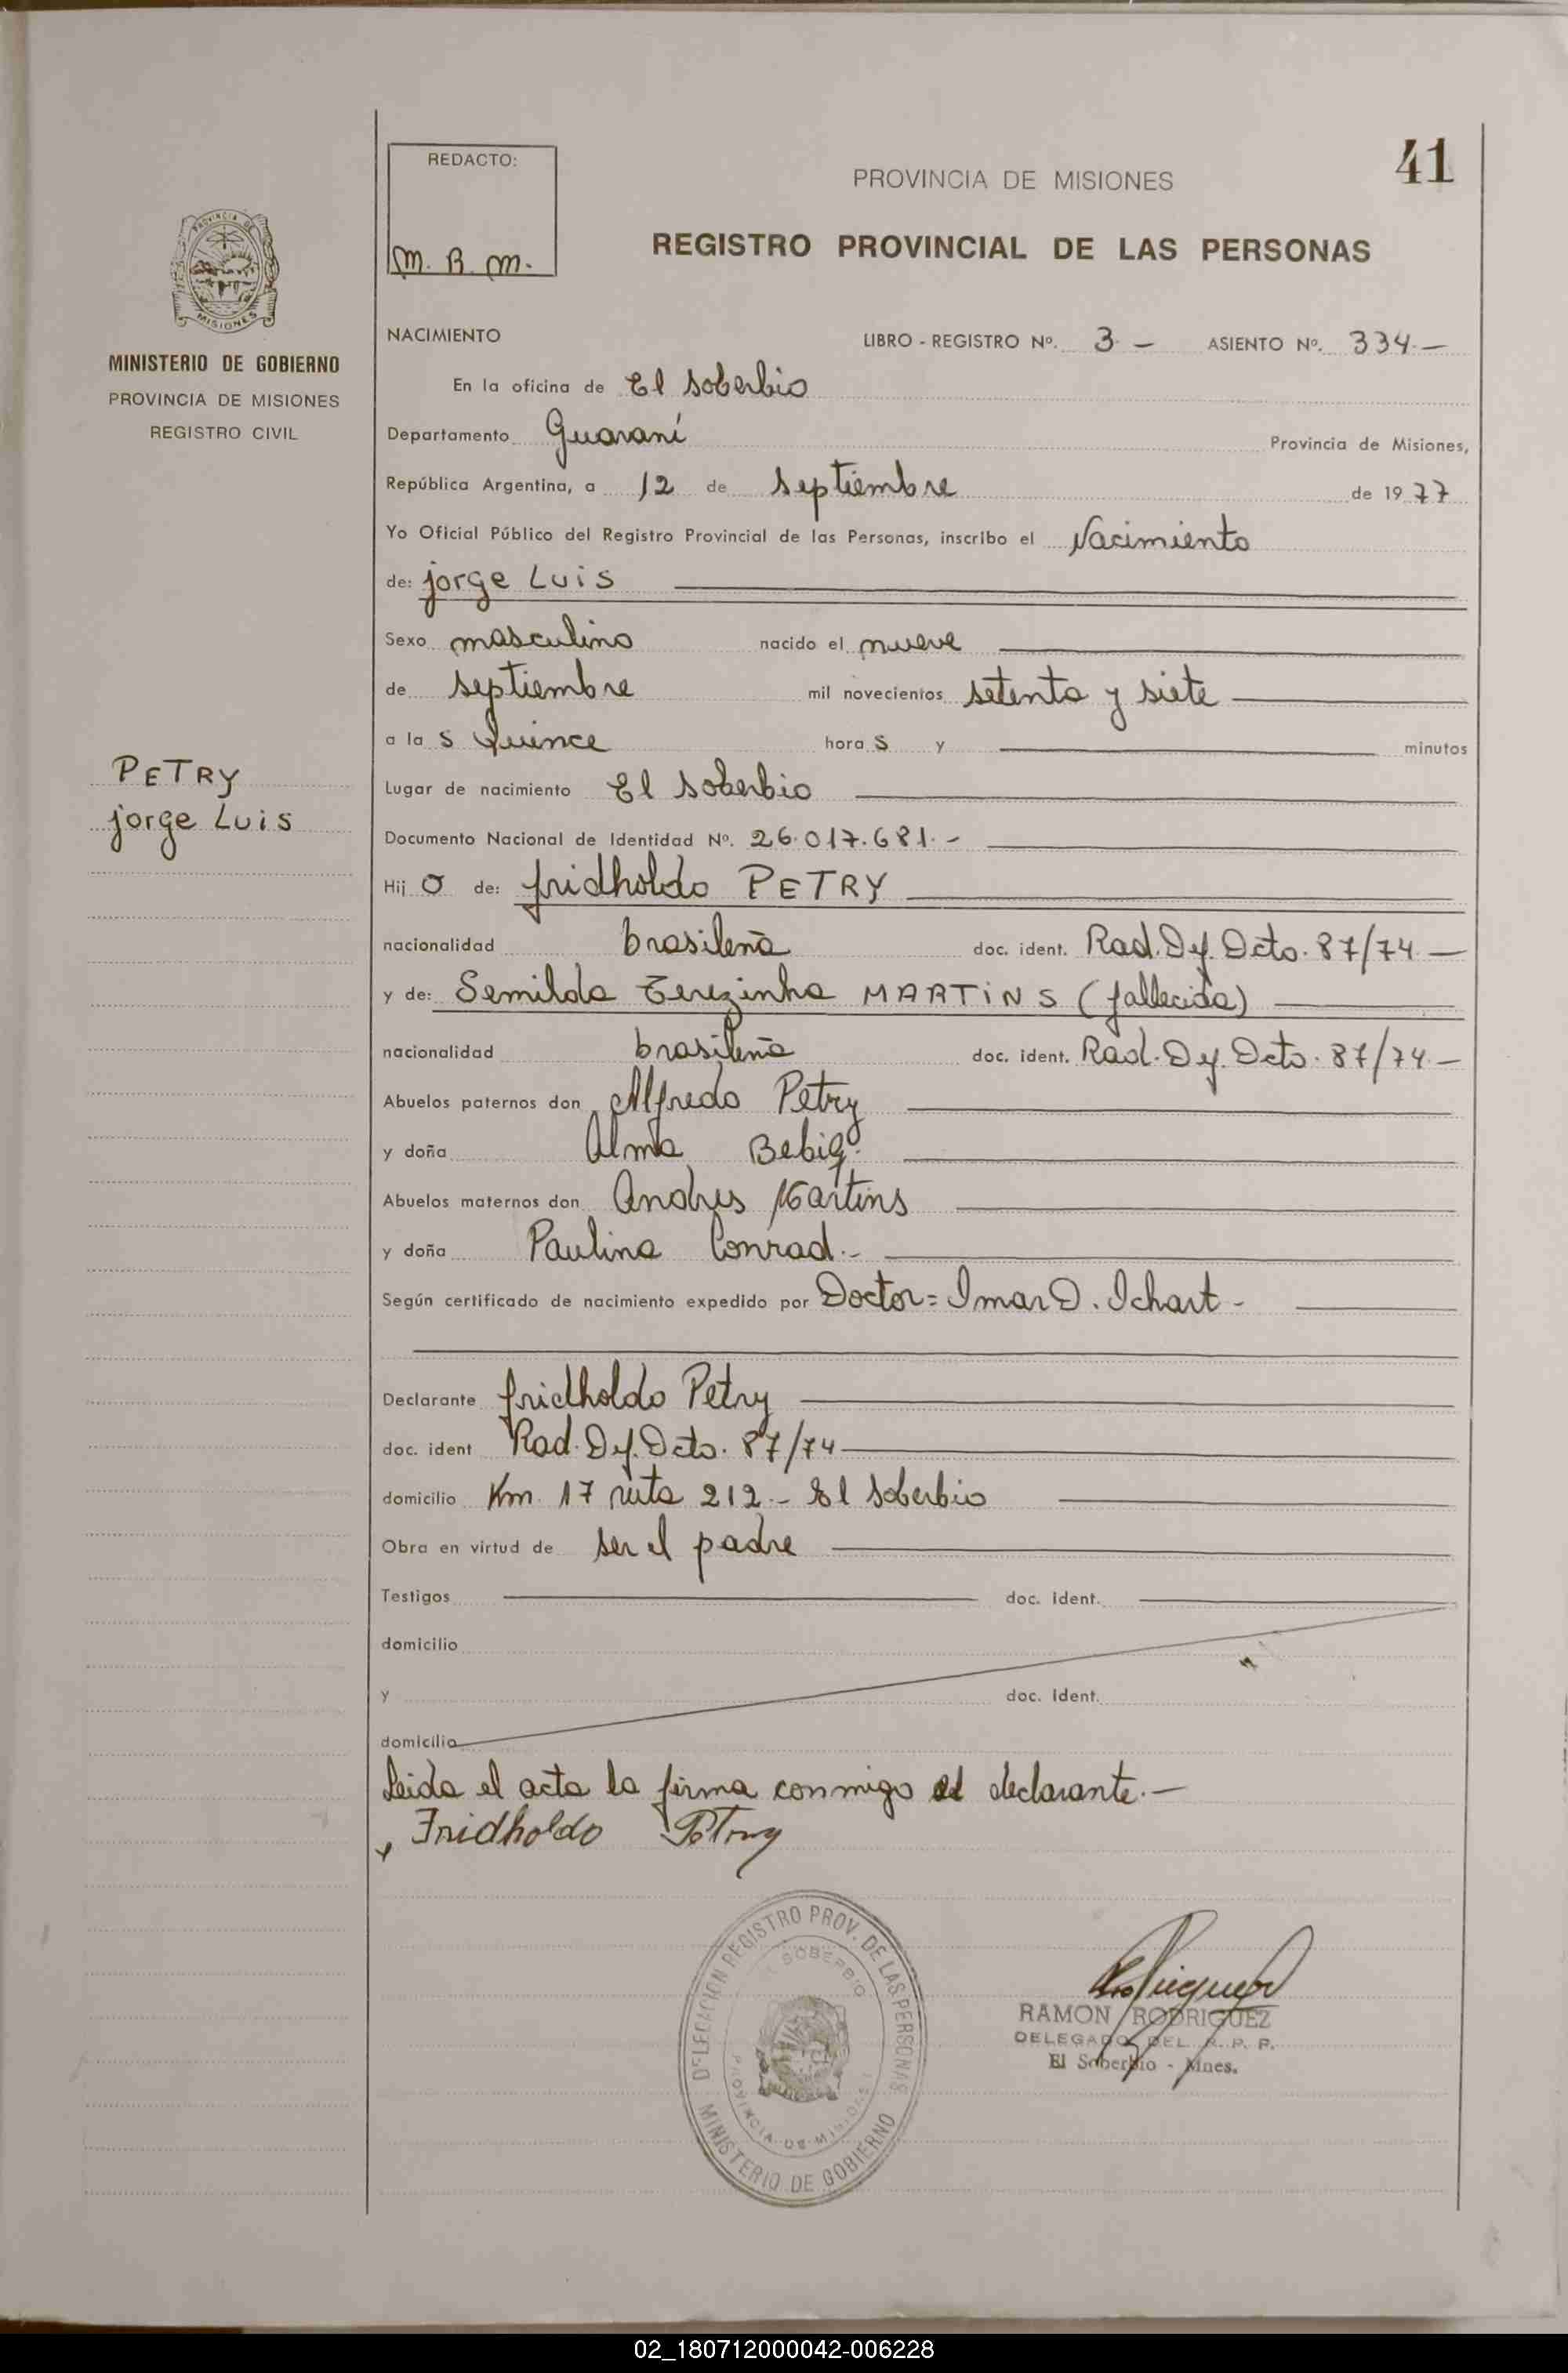 41
REDACTO:
M. B. M.
PROVINCIA DE MISIONES
REGISTRO PROVINCIAL DE LAS PERSONAS
PROVINCIA DE
MISIONES
MINISTERIO DE GOBIERNO
PROVINCIA DE MISIONES
REGISTRO CIVIL
NACIMIENTO LIBRO - REGISTRO Nº. 3 - ASIENTO Nº. 334.-
En la oficina de El Soberbio
Departamento Guaraní Provincia de Misiones,
República Argentina, a 12 de septiembre de 1977
Yo Oficial Público del Registro Provincial de las Personas, inscribo el Nacimiento
de: jorge Luis
Sexo masculino nacido el nueve
de septiembre mil novecientos setenta y siete
a la s Quince hora s y minutos
PETRY
jorge Luis
Lugar de nacimiento El Soberbio
Documento Nacional de Identidad Nº. 26.017.681.-
Hij o de: fridholdo PETRY
nacionalidad brasileña doc. ident. Rad. Def. Dcto. 87/74.-
y de: Semilda Terezinha MARTINS (fallecida)
nacionalidad brasileña doc. ident. Rad. Def. Dcto. 87/74.-
Abuelos paternos don Alfredo Petry
y doña Alma Bebig.
Abuelos maternos don Andres Martins
y doña Paulina Conrad.-
Según certificado de nacimiento expedido por Doctor = Imar D. Ichart -
Declarante fridholdo Petry
doc. ident Rad. Def. Dcto. 87/74
domicilio Km. 17 ruta 212.- El Soberbio
Obra en virtud de ser el padre
Testigos doc. ident.
domicilio
y doc. ident.
domicilio
Leida el acta la firma conmigo el declarante.-
Fridholdo Petry
DELEGACION REGISTRO PROV. DE LAS PERSONAS
EL SOBERBIO
PROVINCIA DE MISIONES
MINISTERIO DE GOBIERNO
RAMON RODRIGUEZ
DELEGADO DEL R. P. P.
El Soberbio - Mnes.
02_180712000042-006228